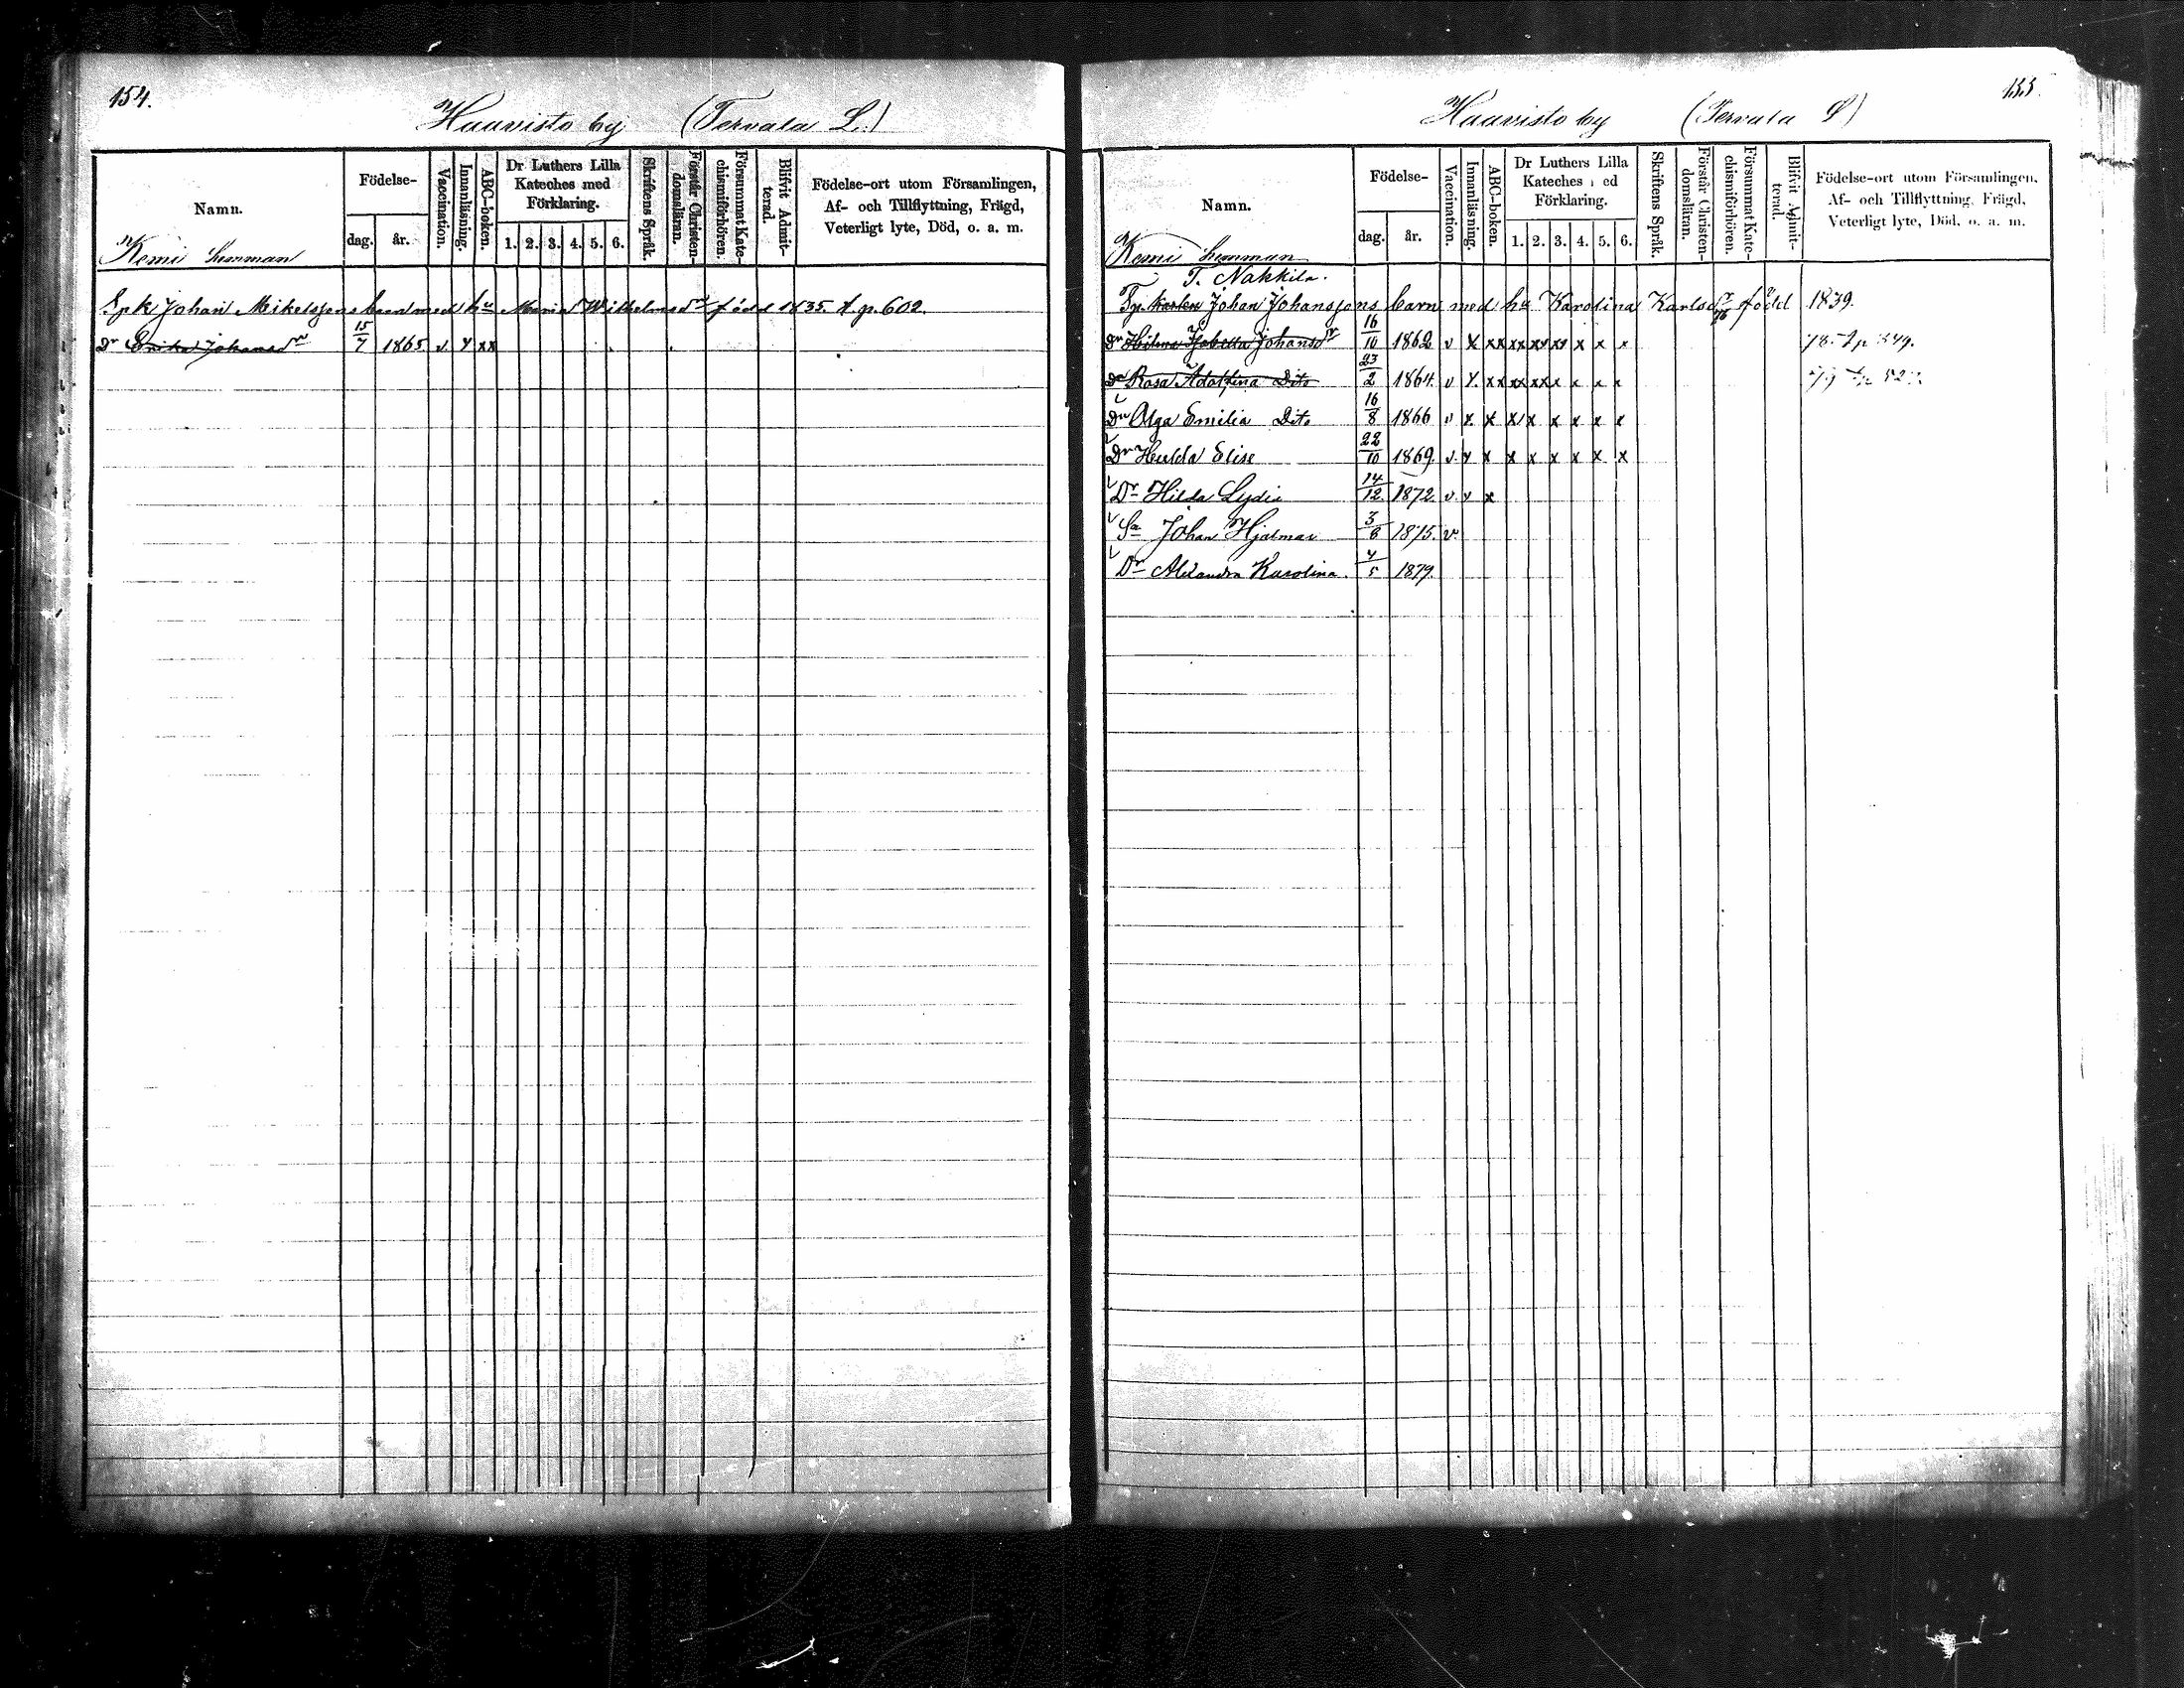 154.
Haavisto by (Tervala L.)
Namn.
Födelse-
dag.
år.
Vaccination.
Innanläsning.
ABC-boken.
Dr Luthers Lilla
Kateches med
Förklaring.
1. 2. 3. 4. 5. 6.
Skriftens Språk.
Förstår Christen-
domsläran.
Försummat Kate-
chismiförhören.
Blifvit Admit-
terad.
Födelse-ort utom Församlingen,
Af- och Tillflyttning, Frägd,
Veterligt lyte, Död, o. a. m.
Kemi
Spk Johan Mikelssons barn med hu Maria Wilhelmsdr född 1835. t. p. 602.
Dr Erika Johansdr 15/7 1865. v. x xx
155.
Haavisto by (Tervala L)
Namn.
Födelse-
dag.
år.
Vaccination.
Innanläsning.
ABC-boken.
Dr Luthers Lilla
Kateches med
Förklaring.
1. 2. 3. 4. 5. 6.
Skriftens Språk.
Förstår Christen-
domsläran.
Försummat Kate-
chismiförhören.
Blifvit Admit-
terad.
Födelse-ort utom Församlingen,
Af- och Tillflyttning, Frägd,
Veterligt lyte, Död, o. a. m.
Kemi
T. Nakkila.
Johan Johanssons barn med hu Karolina Karlsdr född 1839.
Dr Johansdr 16/10 1862 v x xx xx xx xx x x x 78. t p 349.
Dr Rosa Adolfina Dito 23/2 1864. v x. xx xx xx x x x x
Dr Olga Emilia Dito 16/8 1866 v x x x x x x x x
Dr Hulda Elise 22/10 1869. v. x x x x x x x x
Dr Hilda Lydia 14/12. 1872. v. x x
Sn Johan Hjalmar 3/6 1875. v
Dr Alexandra Karolina. 4/5 1879.